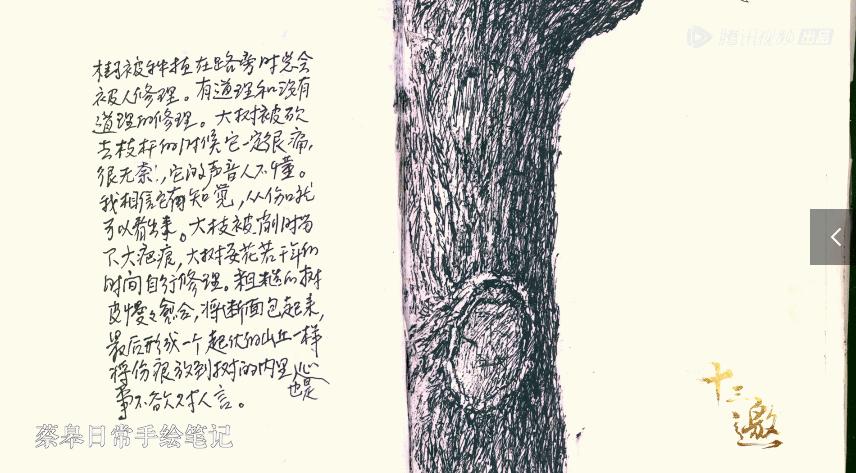 树被种植在路旁时总会
被人修理。有道理和没有
道理的修理。大树被砍
去枝杆的时候它一定很痛，
很无奈！，它的声音人不懂。
我相信它有知觉，从伤口就
可以看出来。大枝被削时留
下大疤痕，大树要花若干年的
时间自行修理。粗糙的树
皮慢慢愈合，将断面包起来，
最后形成一个起伏的山丘一样
将伤痕放到树的内里，心
事不欲对人言。
也是
蔡皋日常手绘笔记
腾讯视频 出品
十三邀